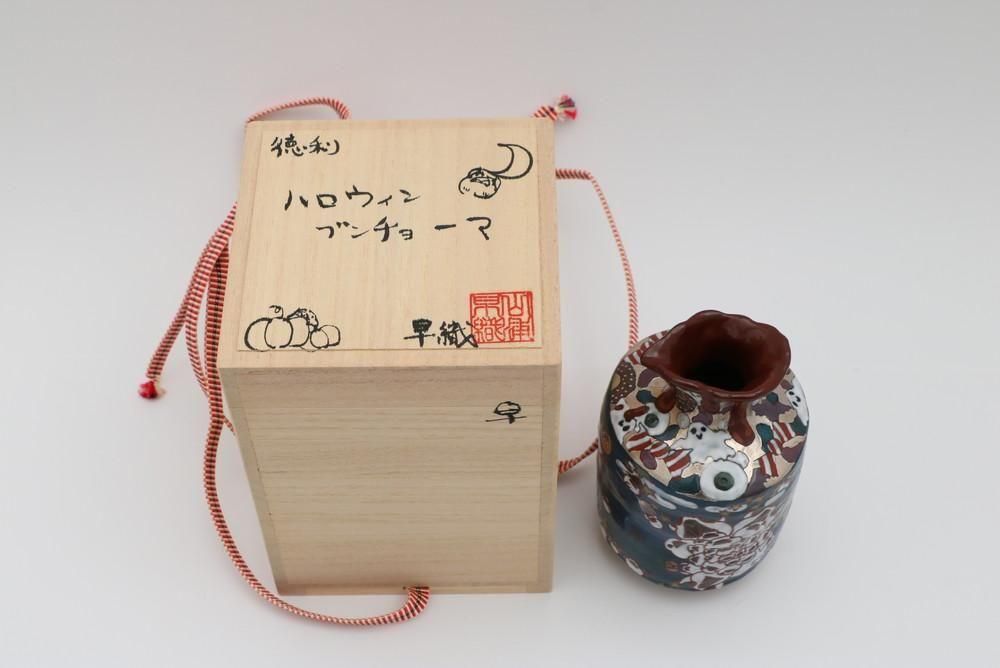 徳利
ハロウィン
ブンチョーマ
早織
早